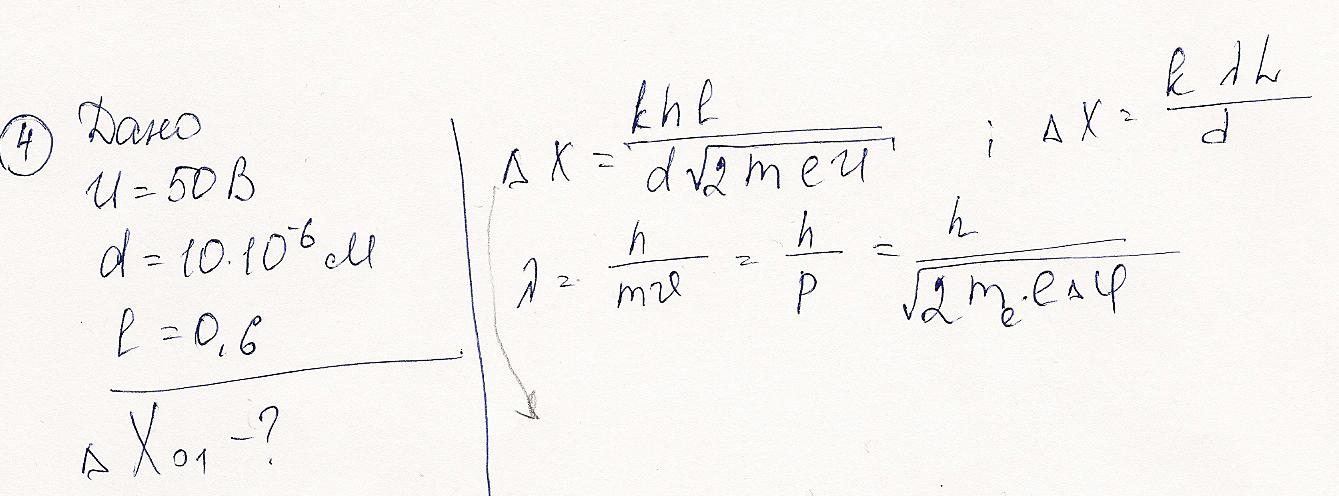 ④ Дано
U = 50 В
d = 10·10⁻⁶ м
l = 0,6
Δ X₀₁ - ?
Δ X = k h l / d √2 m e U ; Δ X = k λ L / d
λ = h / mv = h / p = h / √2 mₑ·e Δφ